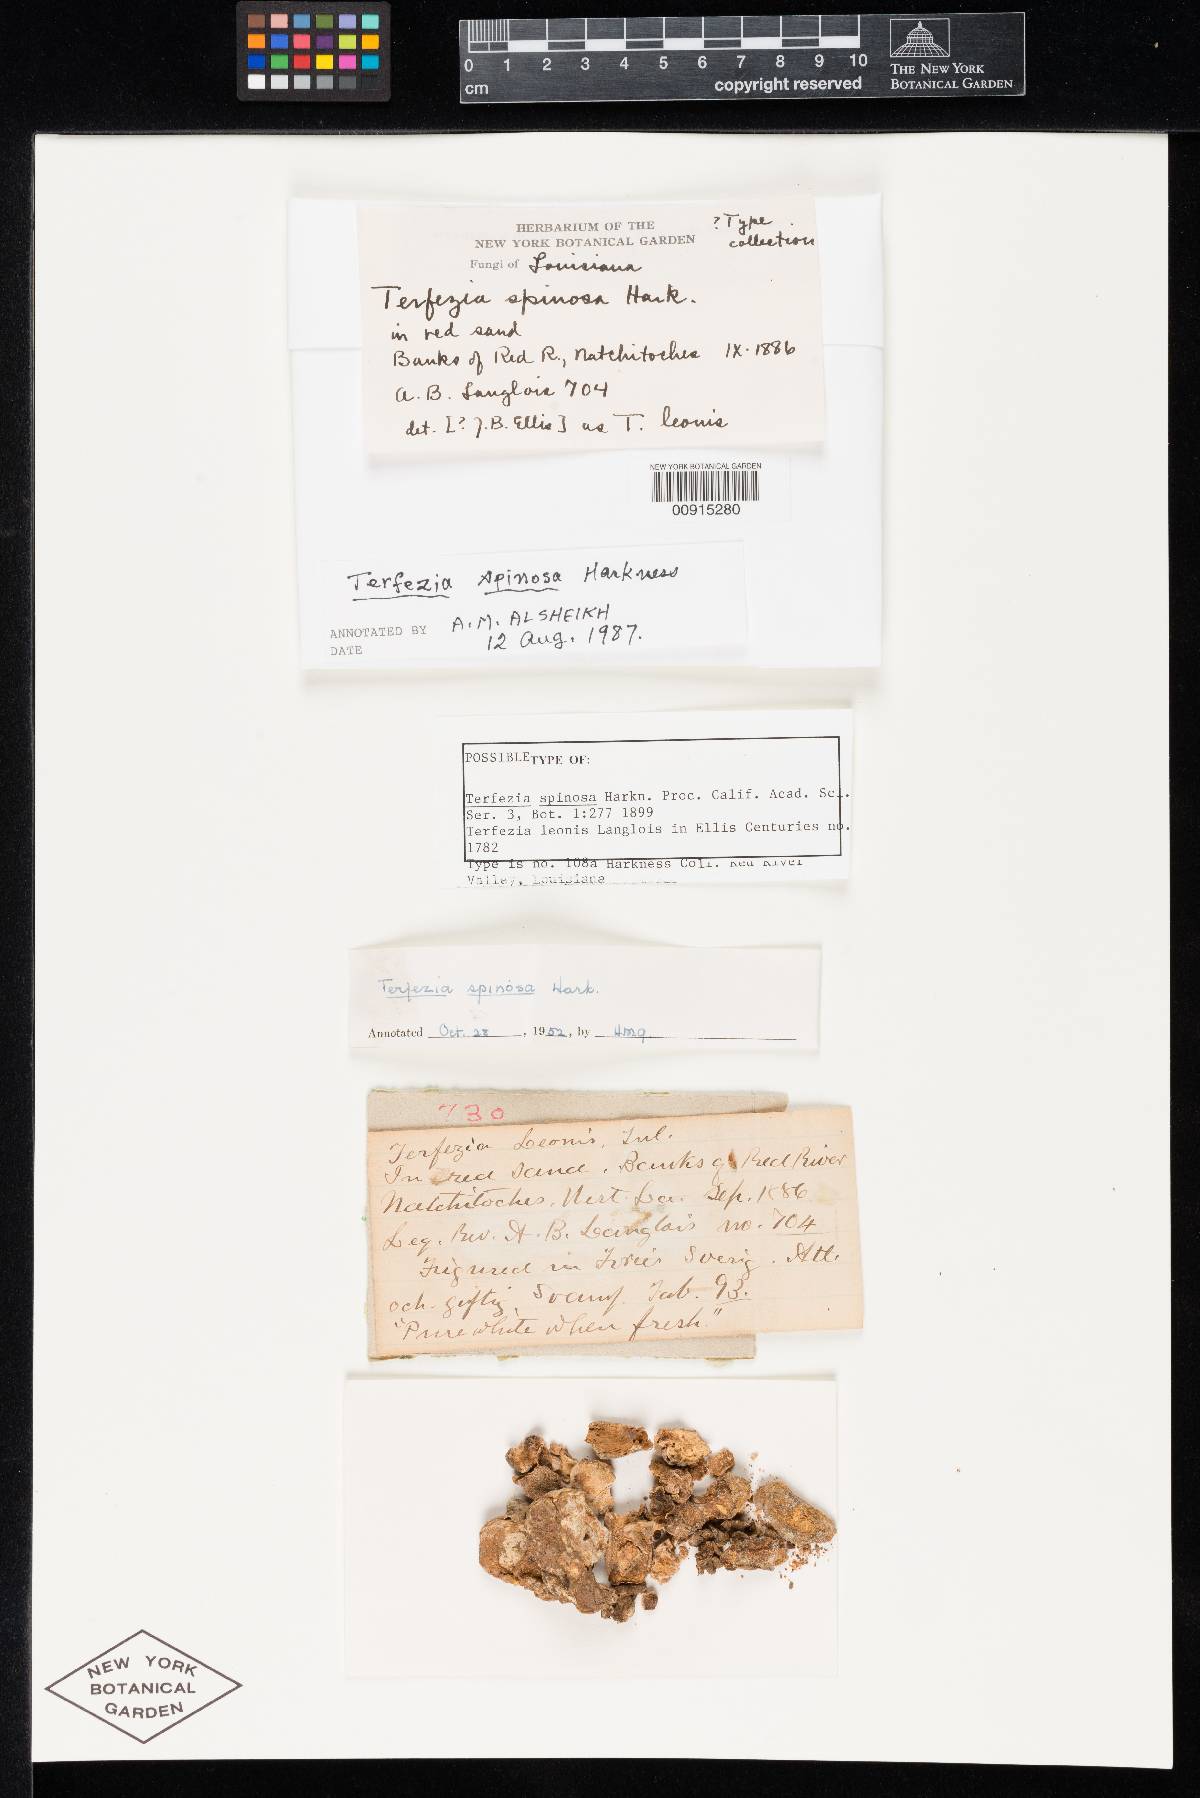 0 1 2 3 4 5 6 7 8 9 10
cm
copyright reserved
THE NEW YORK
BOTANICAL GARDEN
HERBARIUM OF THE
NEW YORK BOTANICAL GARDEN
? Type
collection
Fungi of Louisiana
Terfezia spinosa Hark.
in red sand
Banks of Red R., Natchitoches IX-1886
A. B. Langlois 704
det. [? J.B. Ellis] as T. leonis
NEW YORK BOTANICAL GARDEN
00915280
Terfezia spinosa Harkness
ANNOTATED BY A.M. ALSHEIKH
DATE 12 Aug. 1987.
POSSIBLE TYPE OF:
Terfezia spinosa Harkn. Proc. Calif. Acad. Sci.
Ser. 3, Bot. 1:277 1899
Terfezia leonis Langlois in Ellis Centuries no.
1782
Type is no. 108a Harkness Coll. Red River
Valley, Louisiana
Terfezia spinosa Hark.
Annotated Oct. 28, 1952, by
730
Terfezia Leonis, Tul.
In red sand. Banks of Red River
Natchitoches, West. La. Sep. 1886
Leg. Rev. A. B. Langlois no. 704
Figured in Fries Sverig. Atl.
och giftig. Svamp. Tab. 93.
"Pure white when fresh."
NEW YORK
BOTANICAL
GARDEN